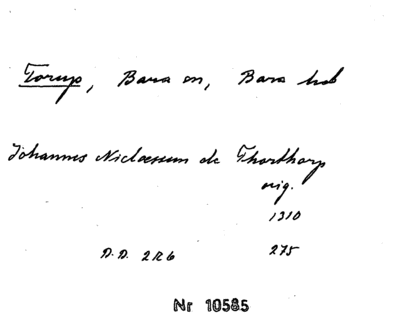 Torup, Bara sn, Bara hd
Johannes Niclæssun de Thorthorp
orig.
1310
D.D. 2R6 275
Nr 10585